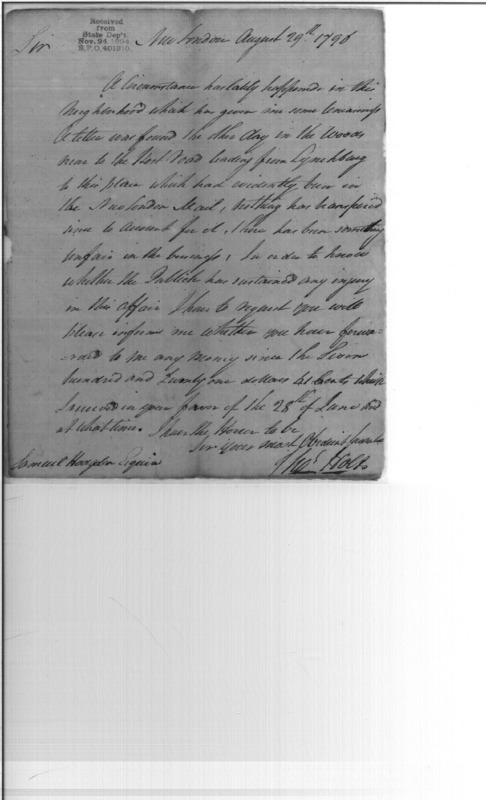 Received
from
State Dep't.
Nov. 24, 1894
R.P.O. 401910.
Sir New London August 29th 1796
A Circumstance has lately happened in this
Neighborhood which has given me some uneasiness
A letter was found the other day in the Woods
near to the Post Road leading from Lynchburg
to this place which had evidently been in
the New London Mail, nothing has transpired
since to account for it, there has been something
unfair in the business; In order to know
whether the Publick has sustained any injury
in this affair I have to request you will
please inform me whether you have forwa-
-rded to me any money since the Seven
hundred and Twenty one dollars Cents which
I received in your favor of the 28th of June and
at what time. I have the Honor to be
Sir your most Obedient Servt
Samuel Hodgdon Esquire Thos Holt